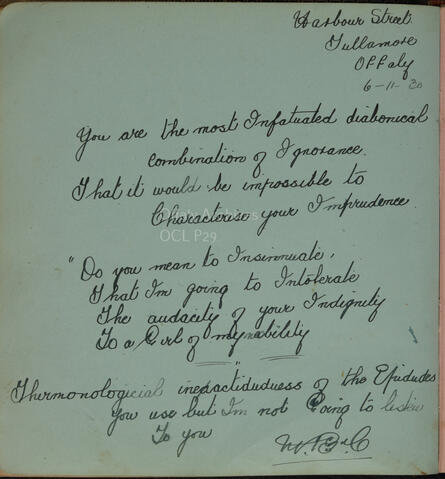 Harbour Street
Tullamore
Offaly
6-11-30
You are the most Infatuated diabonical
combination of Ignorance.
That it would be impossible to
Characterise your Imprudence
OCL P29
"Do you mean to Insinnuate,
That Im going to Intolerate
The audacity of your Indignity
To a Girl of my nability
"
inexactidudness of the
You use but I'm not Going to
To you